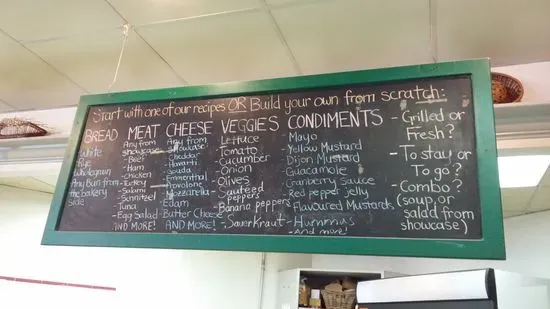 Start with one of our recipes OR Build your own from scratch:
BREAD
White
Rye
Wholegrain
Any Bun from
the bakery
side
MEAT
Any from
showcase
- Beef
- Ham
- Chicken
- Turkey
- Salami
- Schnitzel
- Tuna
- Egg Salad
AND MORE!
CHEESE
Any from
showcase
- Cheddar
Havarti
Gouda
- Emmenthal
- Provolone
- Mozzarella
- Edam
- Butter Cheese
AND MORE!
VEGGIES
- Lettuce
- Tomato
- Cucumber
- Onion
- Olives
- Sauteed
peppers
- Banana peppers
- Sauerkraut
CONDIMENTS
- Mayo
- Yellow Mustard
- Dijon Mustard
- Guacamole
- Cranberry Sauce
- Red pepper jelly
- Flavoured Mustards
- Hummus
- And more!
- Grilled or
Fresh?
- To stay or
To go?
- Combo?
(soup, or
salad from
showcase)